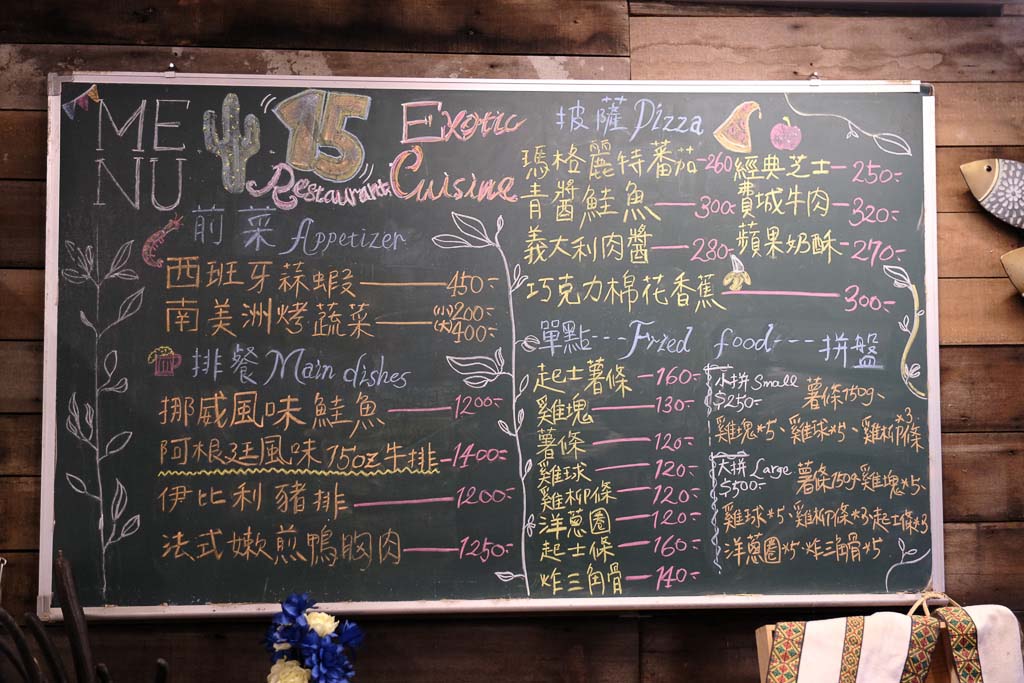 MENU
15
Restaurant
Exotic
Cuisine
前菜 Appetizer
西班牙蒜蝦 450.-
南美洲烤蔬菜 (小)200.- (大)400.-
排餐 Main dishes
挪威風味鮭魚 1200.-
阿根廷風味15oz牛排 1400.-
伊比利豬排 1200.-
法式嫩煎鴨胸肉 1250.-
披薩 Pizza
瑪格麗特蕃茄 260
經典芝士 250.-
青醬鮭魚 300.-
費城牛肉 320.-
義大利肉醬 280.-
蘋果奶酥 270.-
巧克力棉花香蕉 300.-
單點---Fried food---拼盤
起士薯條 160.-
雞塊 130.-
薯條 120.-
雞球 120.-
雞柳條 120.-
洋蔥圈 120.-
起士條 160.-
炸三角骨 140.-
小拼 Small 薯條150g、
$250.-
雞塊*5、雞球*5、雞柳條*3.
大拼 Large 薯條150g雞塊*5、
$500.-
雞球*5、雞柳條*3、起士條*3
洋蔥圈*5、炸三角骨*5